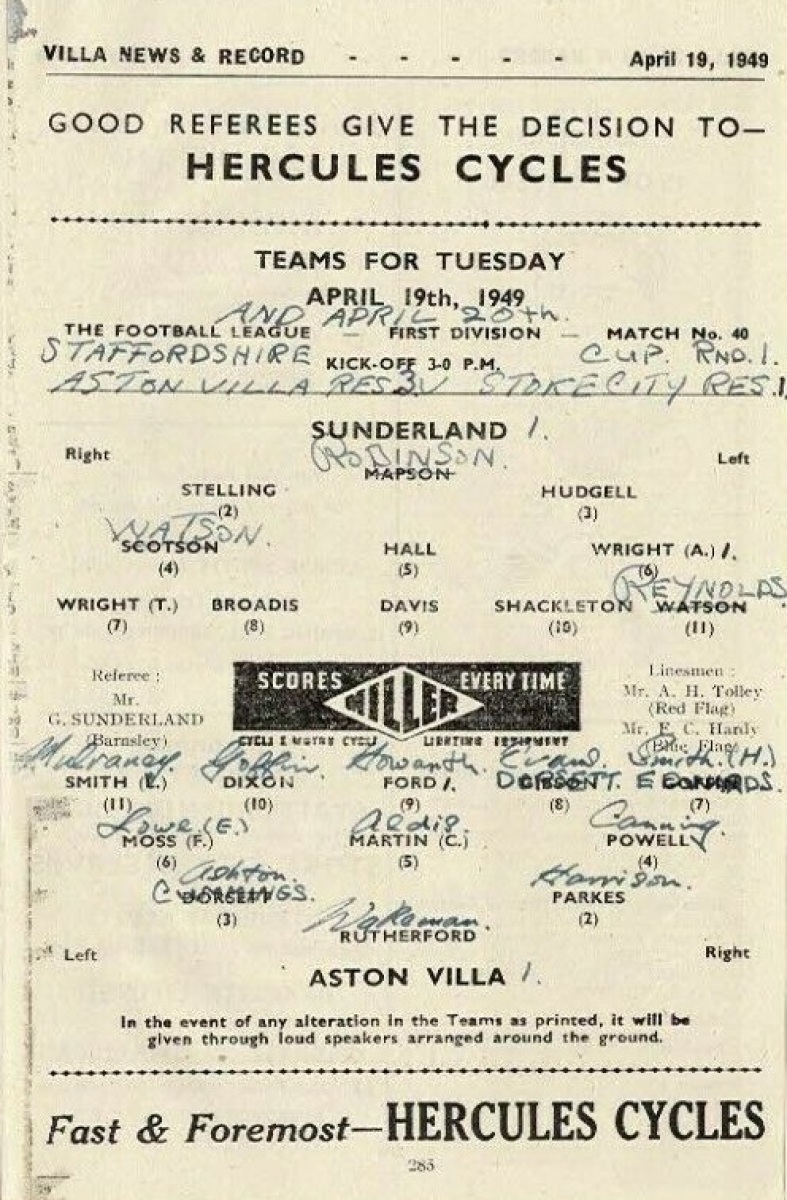 VILLA NEWS & RECORD - - - - - April 19, 1949
GOOD REFEREES GIVE THE DECISION TO—
HERCULES CYCLES
TEAMS FOR TUESDAY
APRIL 19th, 1949
AND APRIL 20th.
THE FOOTBALL LEAGUE — FIRST DIVISION — MATCH No. 40
STAFFORDSHIRE KICK-OFF 3-0 P.M. CUP. RND. 1.
ASTON VILLA RES 3 V STOKE CITY RES. 1
SUNDERLAND 1.
Right ROBINSON. Left
MAPSON
STELLING HUDGELL
(2) (3)
WATSON.
SCOTSON HALL WRIGHT (A.) 1.
(4) (5) (6)
REYNOLDS
WRIGHT (T.) BROADIS DAVIS SHACKLETON WATSON
(7) (8) (9) (10) (11)
Referee :
Mr.
G. SUNDERLAND
(Barnsley)
SCORES MILLER EVERY TIME
CYCLE & MOTOR CYCLE LIGHTING EQUIPMENT
Linesmen :
Mr. A. H. Tolley
(Red Flag)
Mr. E. C. Hardy
(Blue Flag)
Mulraney. Goffin Howarth. Evans. Smith. (H.)
SMITH (L.) DIXON FORD 1. GIBSON DORSETT. EDWARDS.
(11) (10) (9) (8) (7)
Lowe. (E.) Aldis. Canning.
MOSS (F.) MARTIN (C.) POWELL
(6) (5) (4)
Ashton. Harrison.
CUMMINGS. DORSETT PARKES
(3) (2)
Wakeman.
RUTHERFORD
Left Right
ASTON VILLA 1.
In the event of any alteration in the Teams as printed, it will be
given through loud speakers arranged around the ground.
Fast & Foremost—HERCULES CYCLES
285